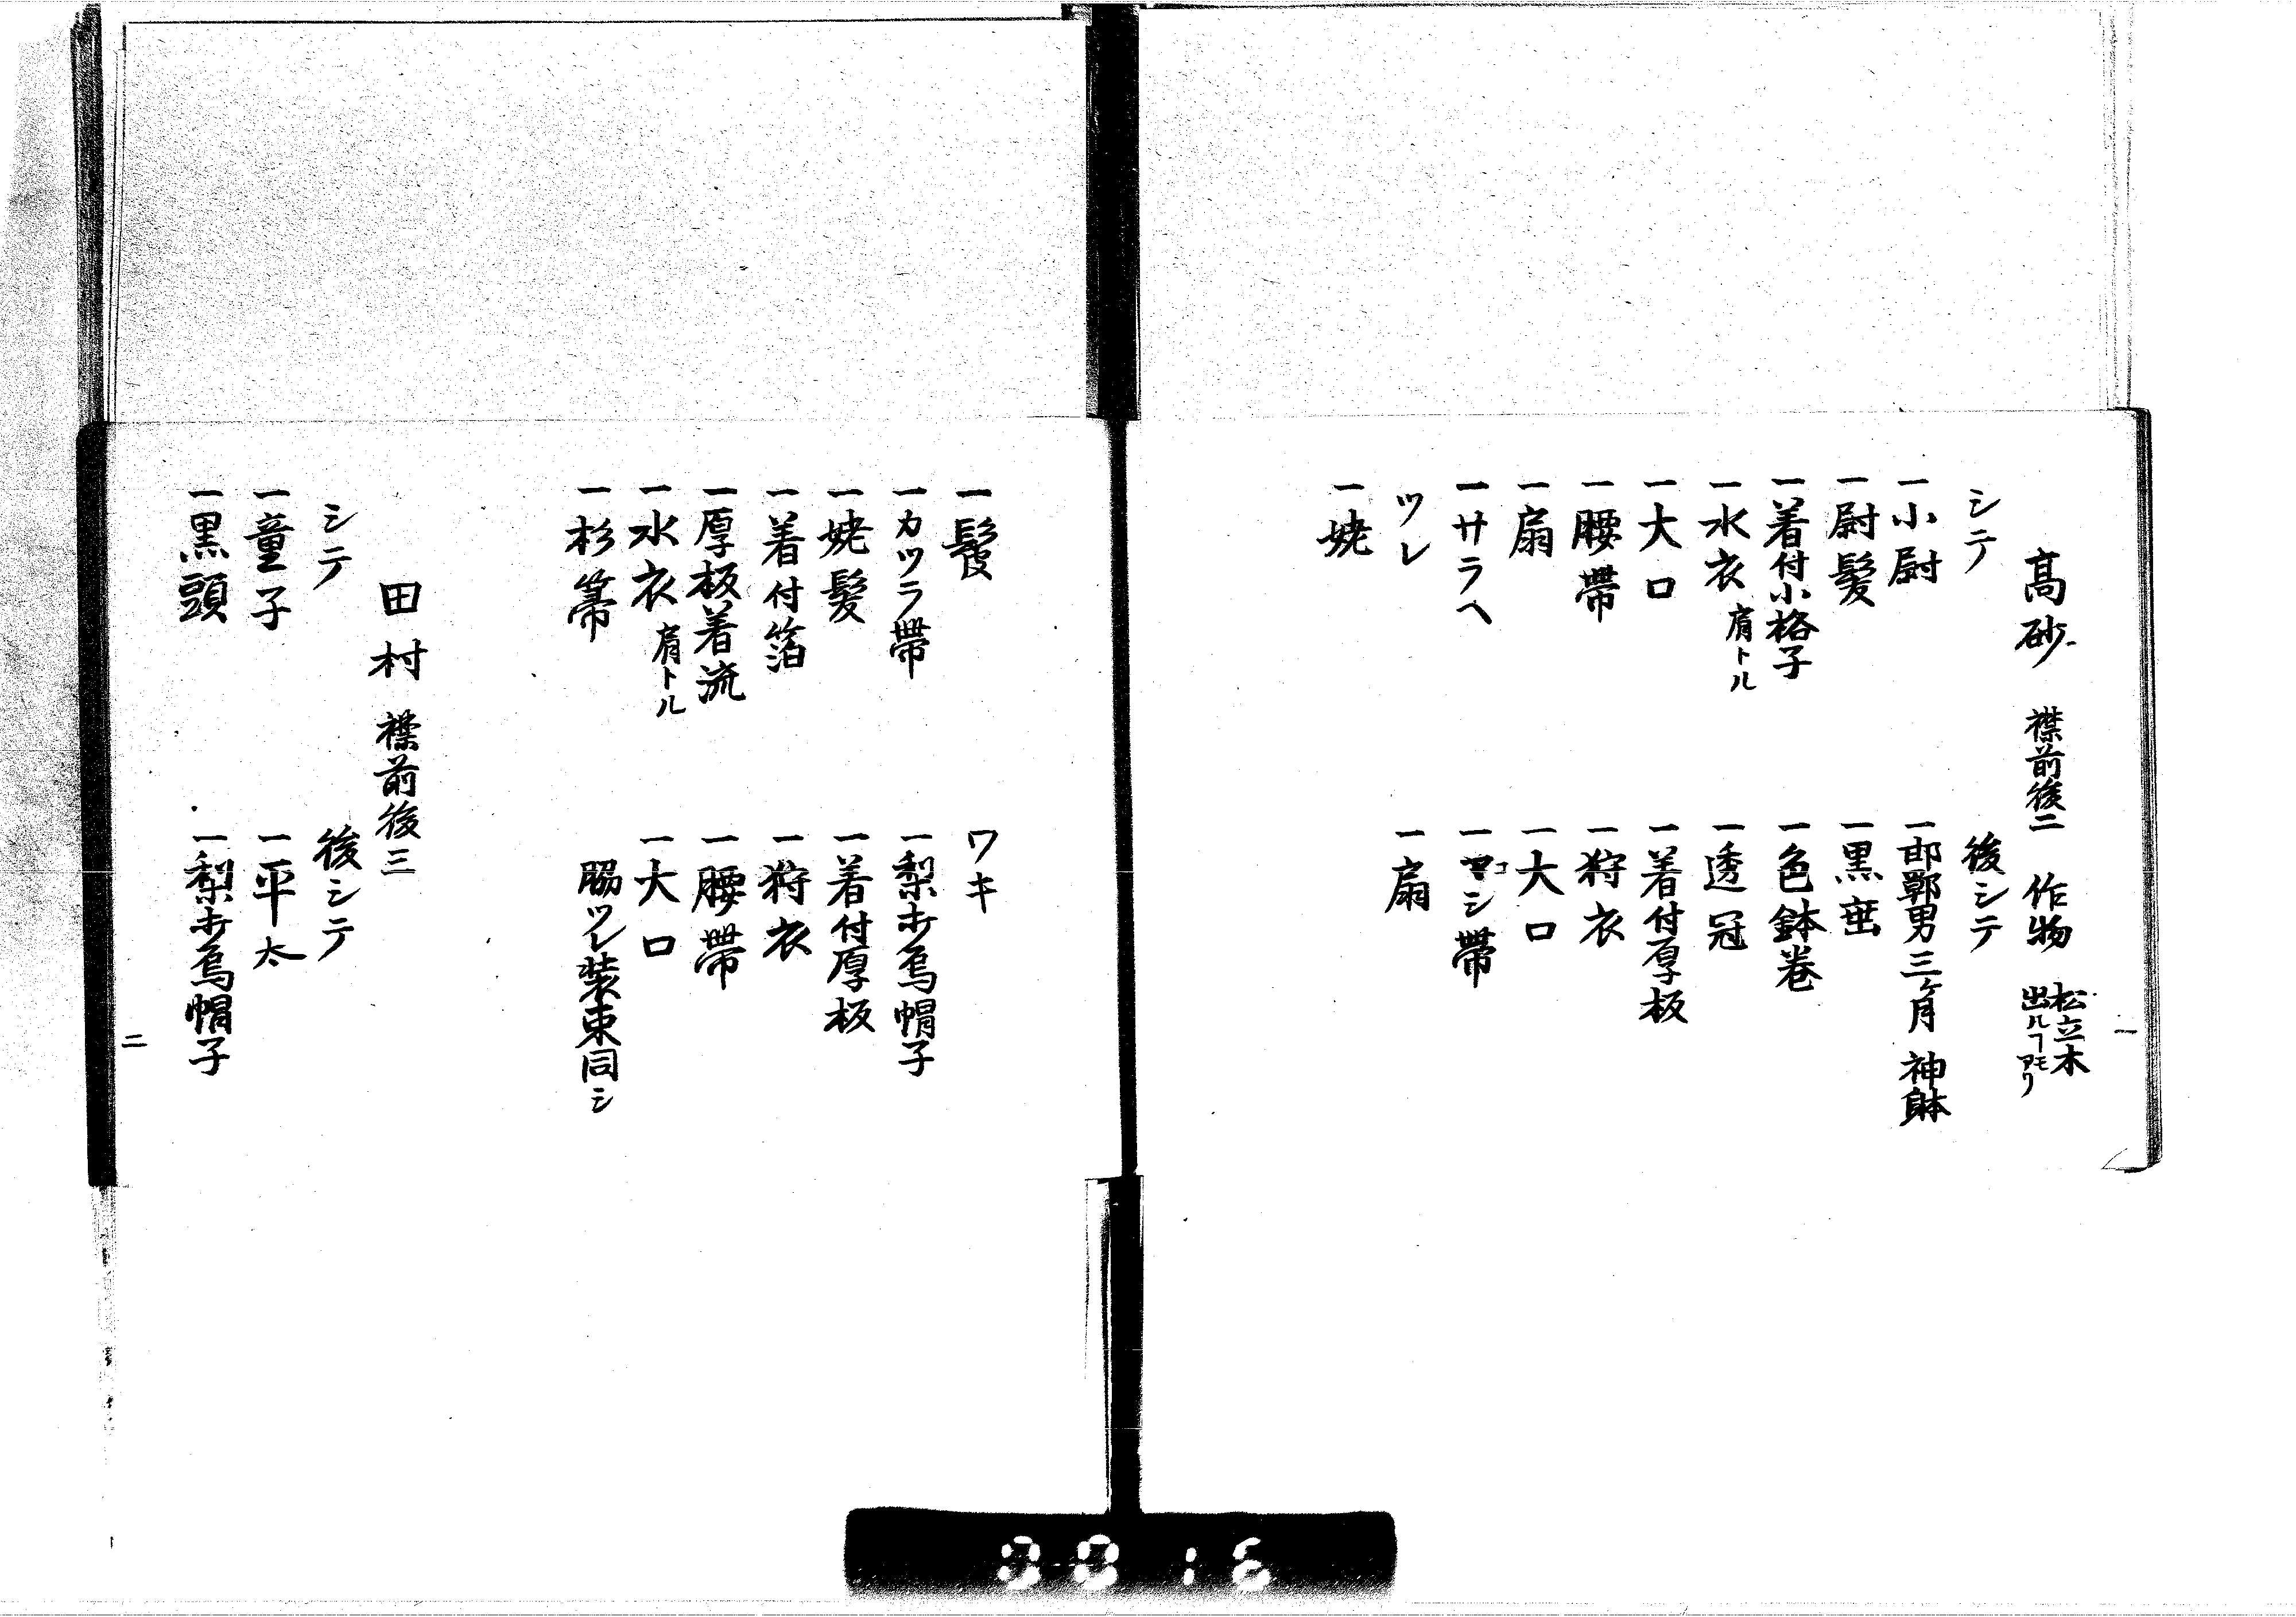 高砂 襟前後二 作物 松立木
出ルヿモアリ
シテ
一小尉
一尉髪
一着付小格子
一水衣 肩トル
一大口
一腰帯
一扇
一サラヘ
ツレ
一姥
後シテ
一邯鄲男 三ケ月 神躰
一黒垂
一色鉢巻
一透冠
一着付厚板
一狩衣
一大口
一コシ帯
一扇
一
一鬘
一カツラ帯
一姥髪
一着付箔
一厚板着流
一水衣 肩トル
一杉箒
ワキ
一梨打烏帽子
一着付厚板
一狩衣
一腰帯
一大口
脇ツレ装束同シ
田村 襟前後三
シテ
一童子
一黒頭
後シテ
一平太
一梨打烏帽子
二